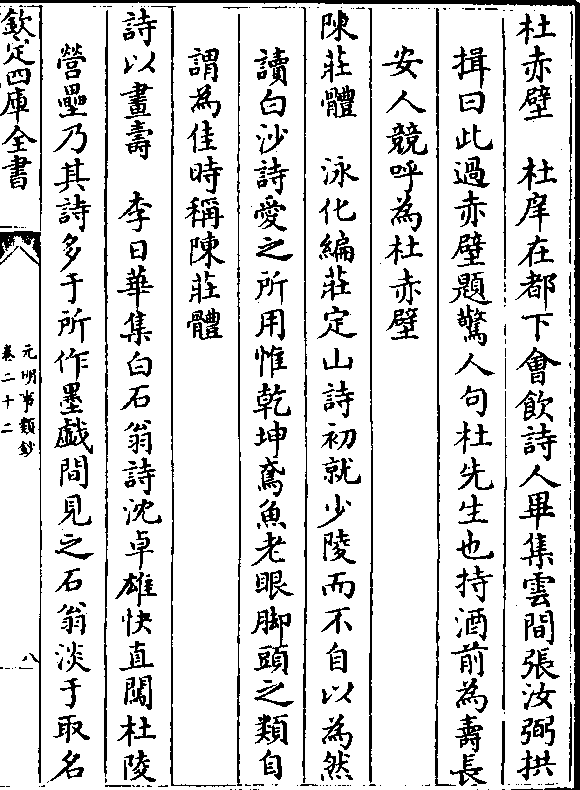 杜赤壁　杜庠在都下會飲詩人畢集雲間張汝弼拱
揖曰此過赤壁題驚人句杜先生也持酒前為壽長
安人競呼為杜赤壁
陳莊體　泳化編莊定山詩初就少陵而不自以為然
讀白沙詩愛之所用惟乾坤鳶魚老眼脚頭之類自
謂為佳時稱陳莊體
詩以畫壽　李日華集白石翁詩沈卓雄快直闖杜陵
營壘乃其詩多于所作墨戯間見之石翁淡于取名
欽定四庫全書
元明事類鈔
卷二十二
八